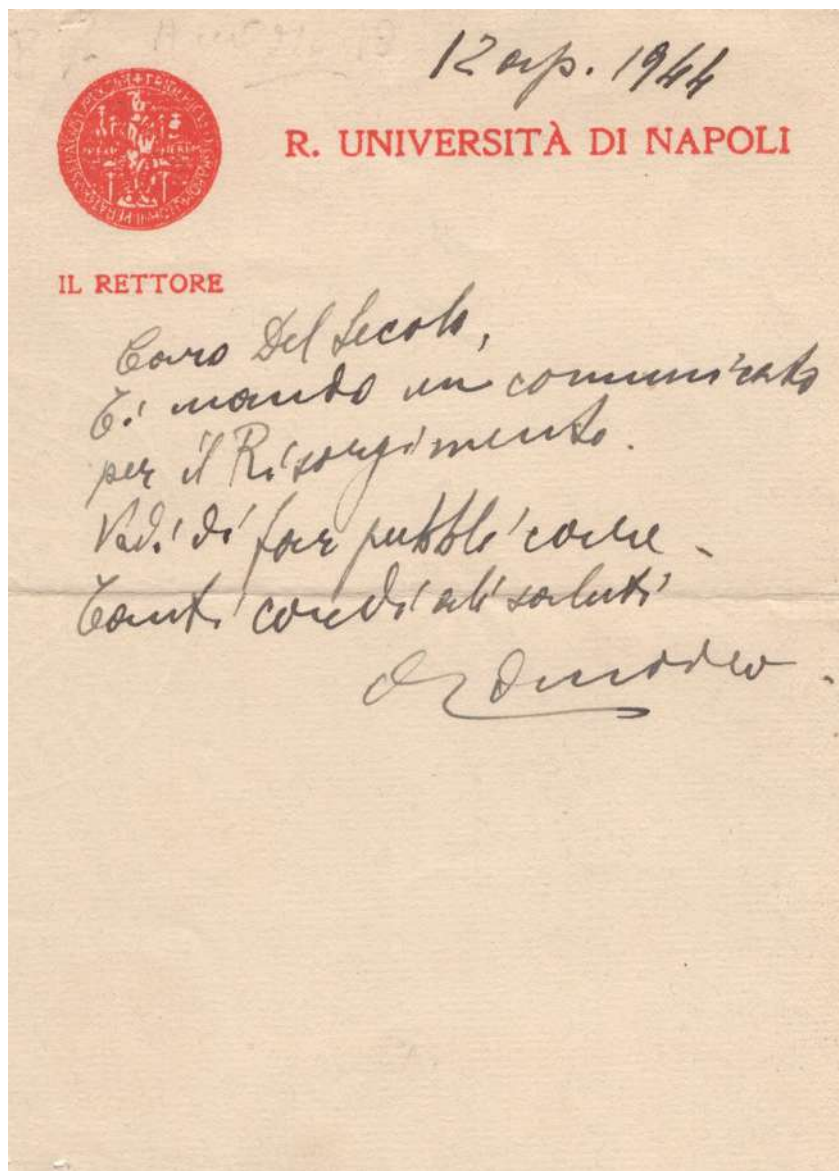 12 ap. 1944
R. UNIVERSITÀ DI NAPOLI
IL RETTORE
Caro Del Secolo,
Ti mando un comunicato
per il Risorgimento.
Vedi di far pubblicare -
Tanti cordiali saluti
Omodeo